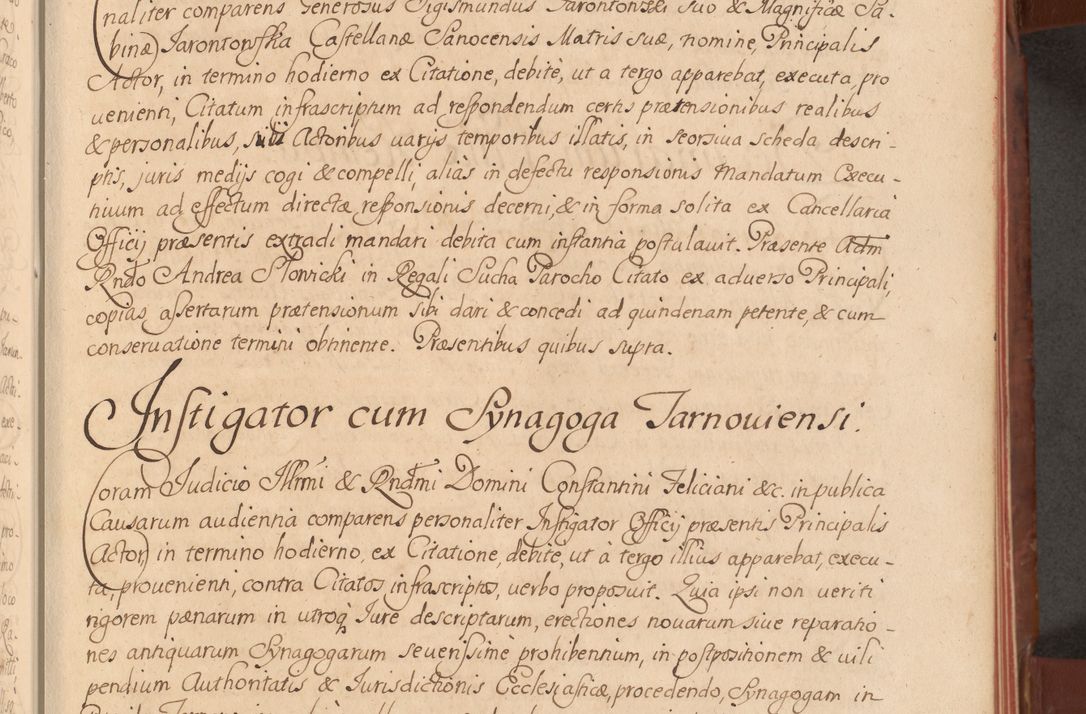 naliter comparens Generosus Sigismundus Jarontowski suo & Magnificæ Sa-
binæ Jarontowska Castellanæ Sanocensis Matris suæ, nomine, Principalis
Actor, in termino hodierno ex Citatione, debitè, ut a tergo apparebat, executa, pro
venienti, Citatum infrascriptum ad respondendum certis prætensionibus realibus
& personalibus, sibi Actoribus varijs temporibus illatis, in seorsiva scheda descri-
ptis, juris medijs cogi & compelli, aliàs in defectu responsionis Mandatum Execu-
tivum ad effectum directæ responsionis decerni, & in forma solita ex Cancellaria
Officij præsentis extradi mandari debita cum instantia postulavit. Præsente Adm
Rndo Andrea Slowicki in Regali Sucha Parocho Citato ex adverso Principali,
copias assertarum prætensionum sibi dari & concedi ad quindenam petente, & cum
conservatione termini obtinente. Præsentibus quibus supra.
Instigator cum Synagoga Tarnoviensi.
Coram Judicio Illrmi & Rndmi Domini Constantini Feliciani &c. in publica
Causarum audientia comparens personaliter Instigator Officij præsentis Principalis
Actor, in termino hodierno, ex Citatione, debitè, ut à tergo illius apparebat, execu-
ta, provenienti, contra Citatos infrascriptos, verbo proposuit. Quia ipsi non veriti
rigorem pænarum in utroq Jure descriptarum, erectiones novarum sive reparatio-
nes antiquarum Synagogarum severissimè prohibentium, in postpositionem & vili
pendium Authoritatis & Jurisdictionis Ecclesiasticæ, procedendo, Synagogam in